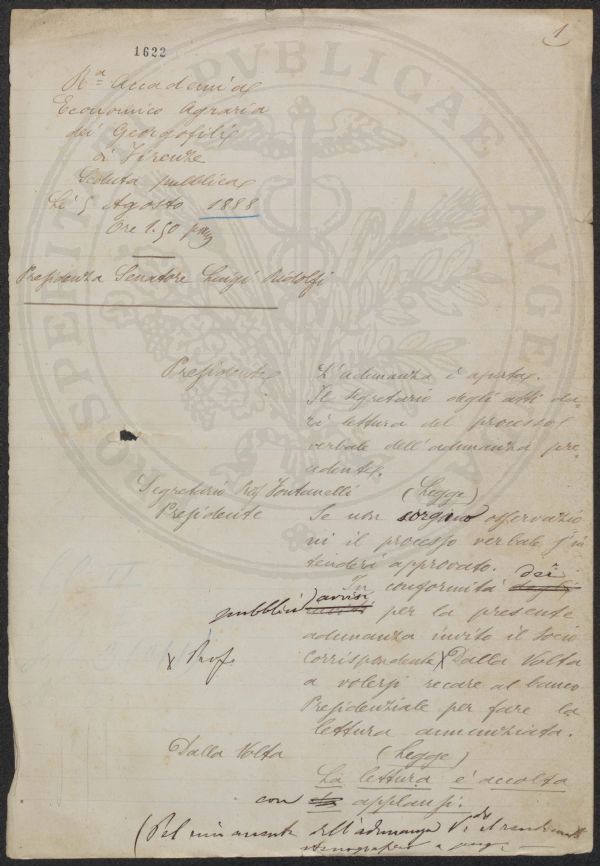 1
1622
Rª Accademia
Economico Agraria
dei Georgofili
di Firenze
Seduta pubblica
Li 5 Agosto 1888
Ore 1.50 pom
Presidenza Senatore Luigi Ridolfi
Presidente L'adunanza è aperta.
Il Segretario degli atti da-
rà lettura del processo
verbale dell'adunanza pre-
cedente.
Segretario Prof Fontanelli (Legge)
Presidente Se non sorgono osservazio
ni il processo verbale s'in
tenderà approvato.
In conformità degli dei
pubblici avvisi per la presente
adunanza invito il socio
X Prof. Corrispondente X Dalla Volta
a volersi recare al banco
Presidenziale per fare la
lettura annunziata.
Dalla Volta (Legge)
La lettura è accolta
con applausi.
(Pel rimanente dell'adunanza il rendiconto
stenografico a
PROSPERITATI PUBLICAE AUGENDAE